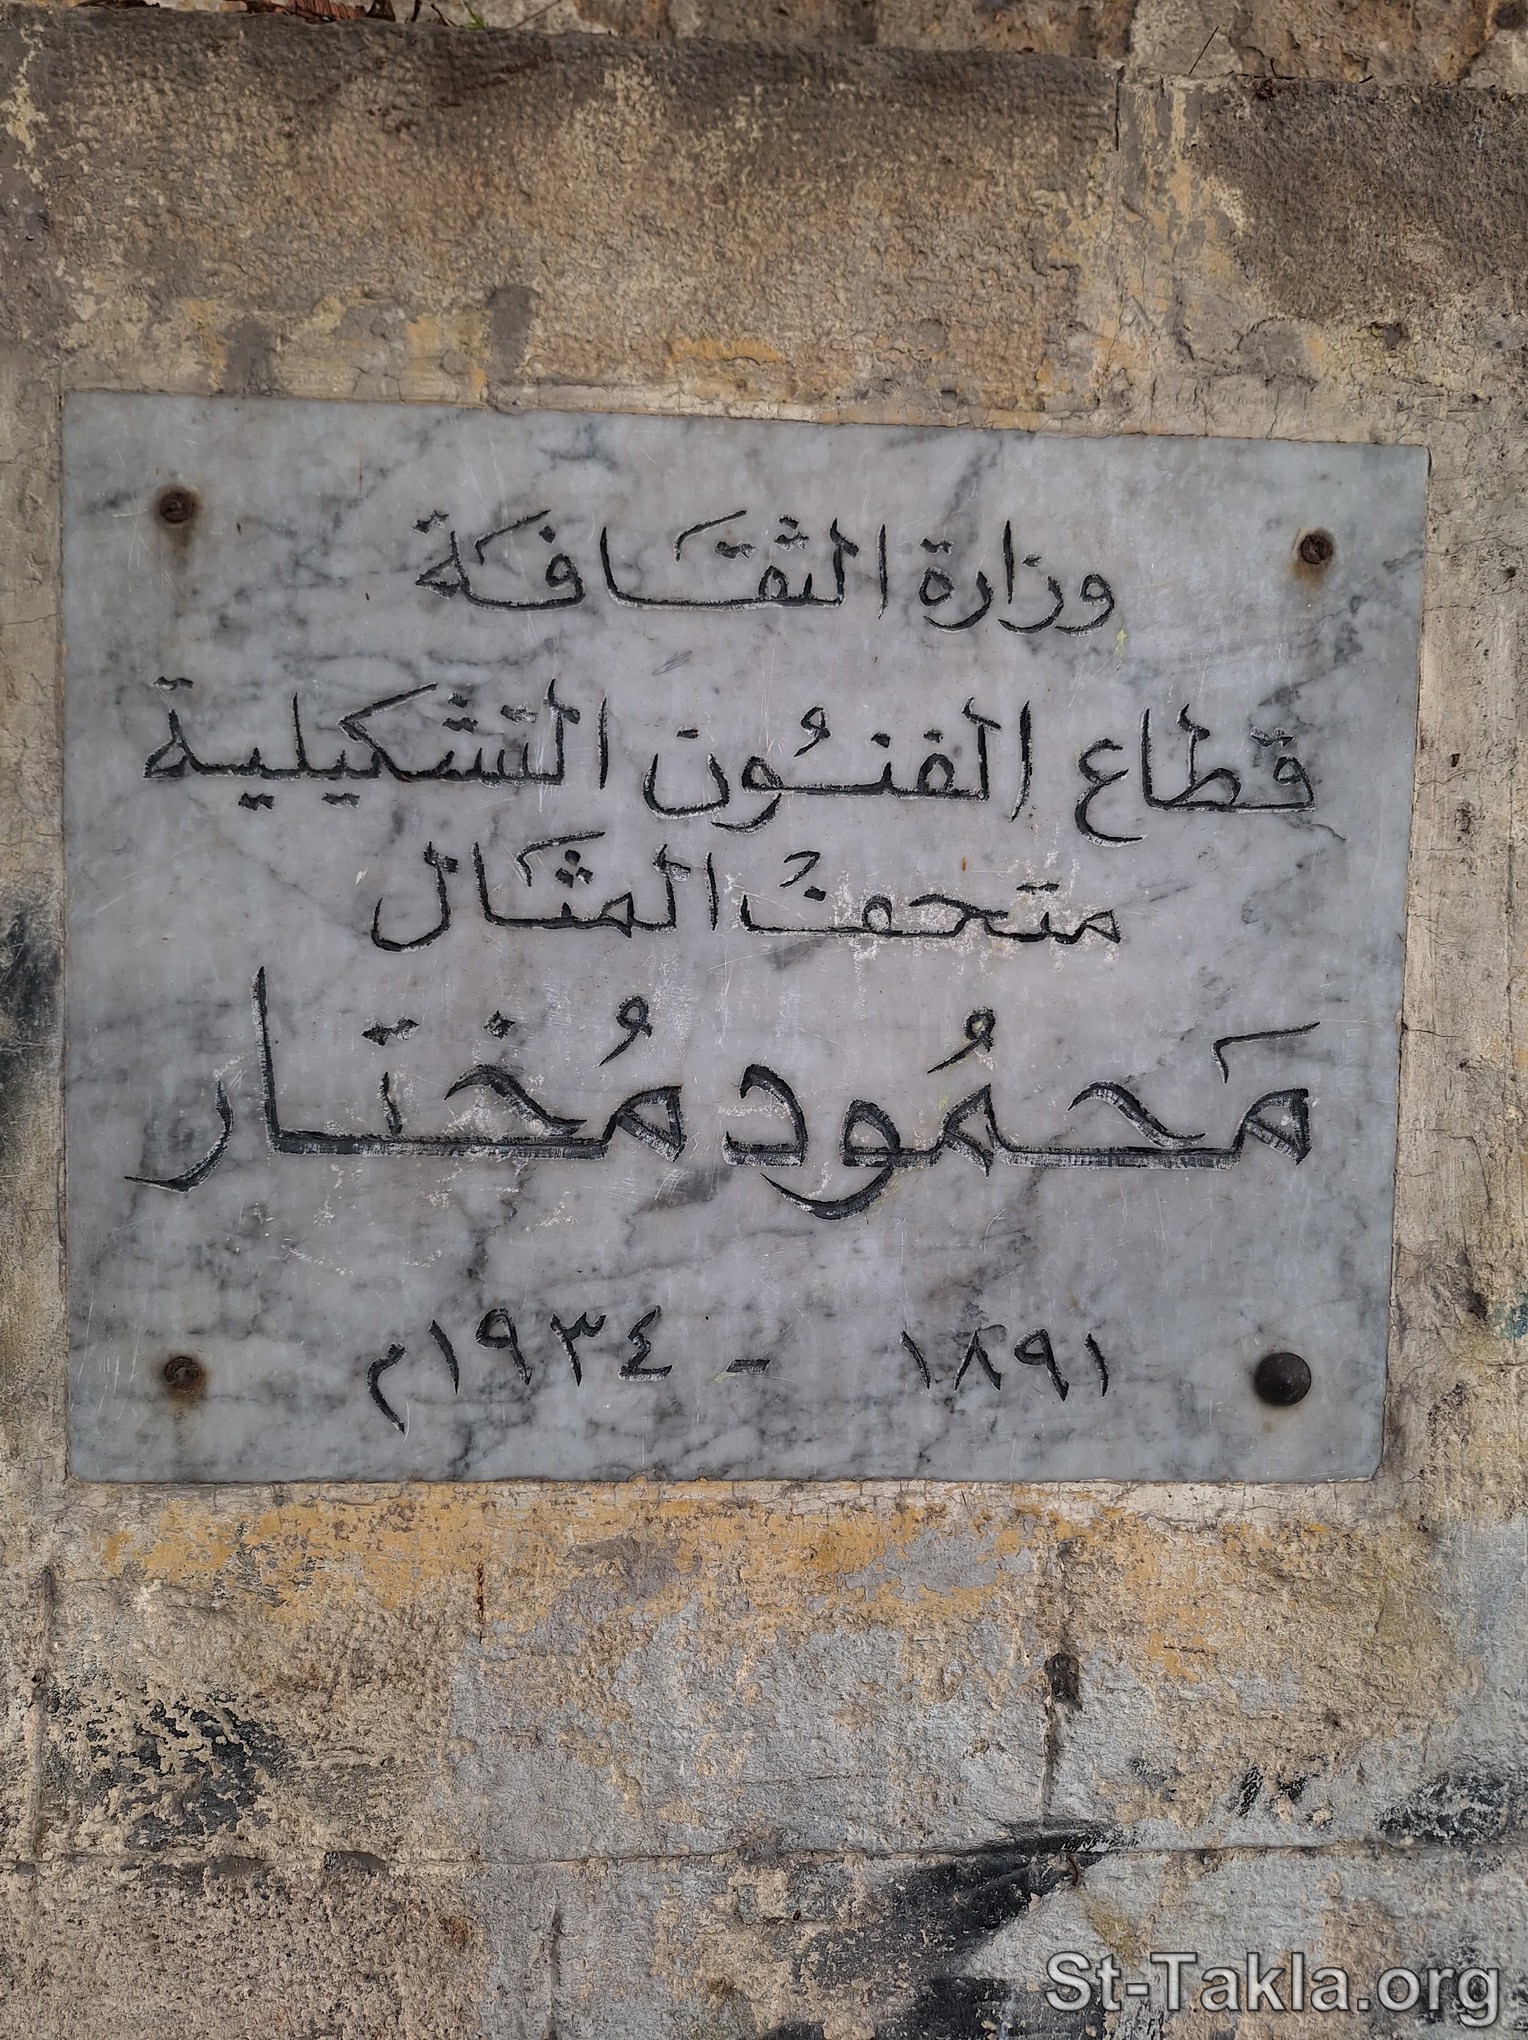 وزارة الثقافة
قطاع الفنُون التشكيلية
متحف المثال
مَحمُود مُختار
١٨٩١ - ١٩٣٤م
St-Takla.org